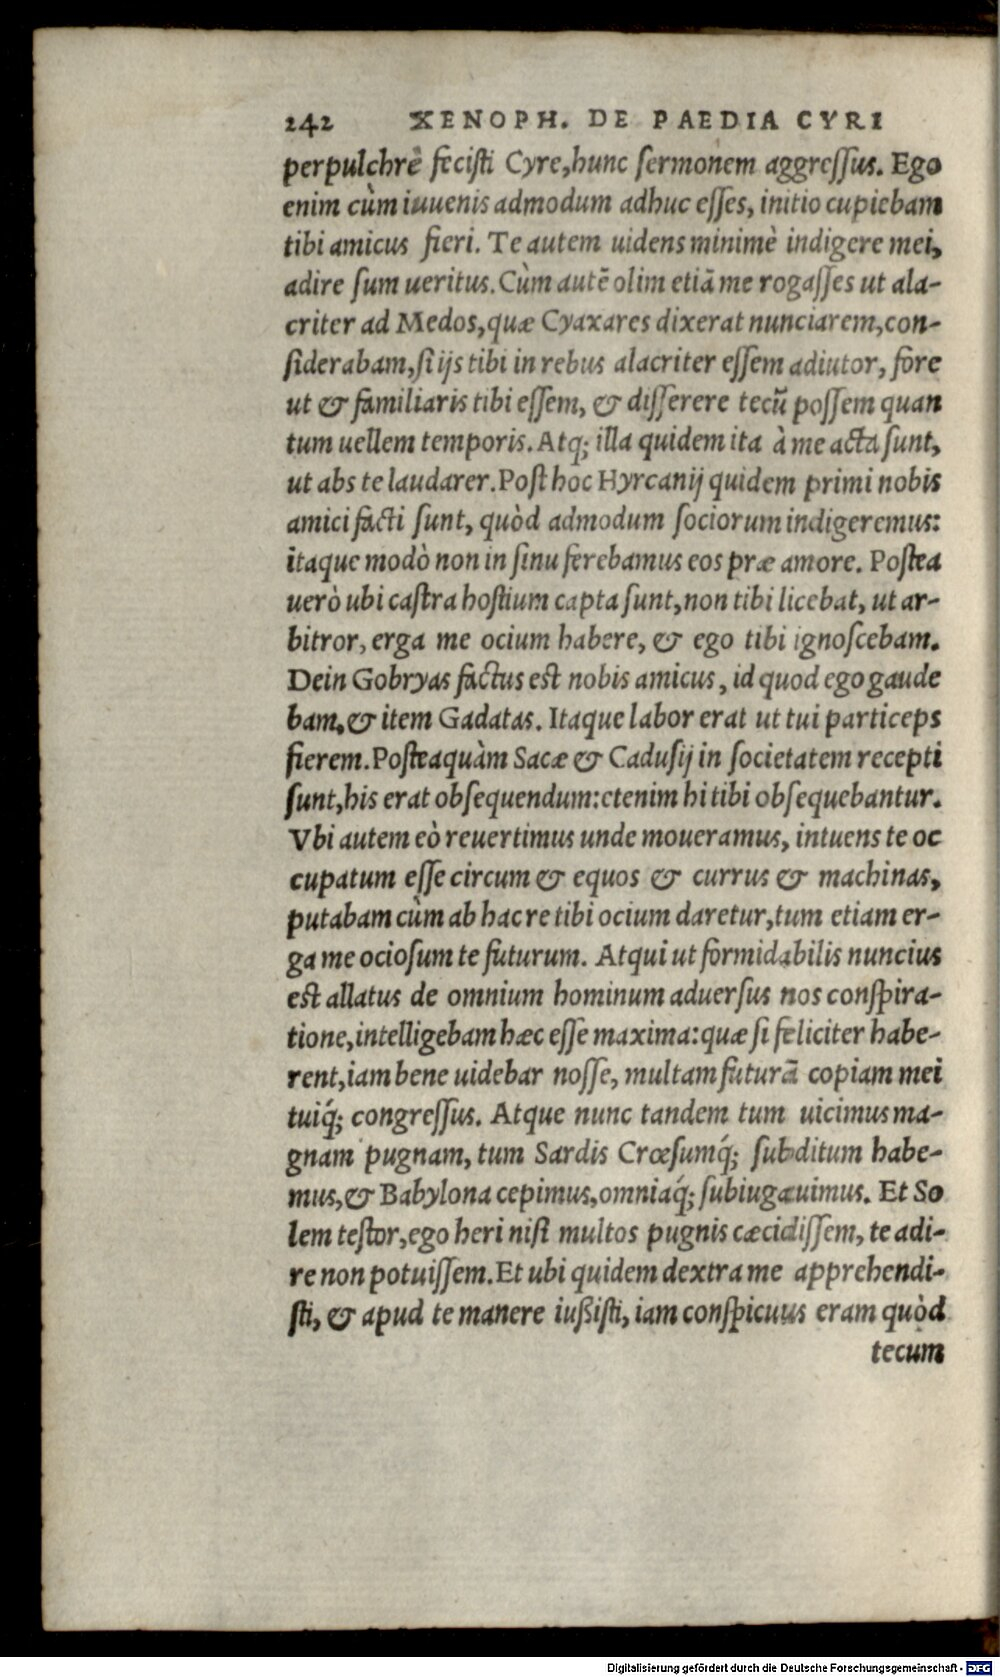 242 XENOPH. DE PAEDIA CYRI
perpulchrè fecisti Cyre, hunc sermonem aggressus. Ego
enim cùm iuuenis admodum adhuc esses, initio cupiebam
tibi amicus fieri. Te autem uidens minimè indigere mei,
adire sum ueritus. Cùm autē olim etiā me rogasses ut ala-
criter ad Medos, quæ Cyaxares dixerat nunciarem, con-
siderabam, si ijs tibi in rebus alacriter essem adiutor, fore
ut & familiaris tibi essem, & disserere tecū possem quan
tum uellem temporis. Atq; illa quidem ita à me acta sunt,
ut abs te laudarer. Post hoc Hyrcanij quidem primi nobis
amici facti sunt, quòd admodum sociorum indigeremus:
itaque modò non in sinu ferebamus eos præ amore. Postea
uerò ubi castra hostium capta sunt, non tibi licebat, ut ar-
bitror, erga me ocium habere, & ego tibi ignoscebam.
Dein Gobryas factus est nobis amicus, id quod ego gaude
bam, & item Gadatas. Itaque labor erat ut tui particeps
fierem. Posteaquàm Sacæ & Cadusij in societatem recepti
sunt, his erat obsequendum: etenim hi tibi obsequebantur.
Vbi autem eò reuertimus unde moueramus, intuens te oc
cupatum esse circum & equos & currus & machinas,
putabam cùm ab hac re tibi ocium daretur, tum etiam er-
ga me ociosum te futurum. Atqui ut formidabilis nuncius
est allatus de omnium hominum aduersus nos conspira-
tione, intelligebam hæc esse maxima: quæ si feliciter habe-
rent, iam bene uidebar nosse, multam futurā copiam mei
tuiq́; congressus. Atque nunc tandem tum uicimus ma-
gnam pugnam, tum Sardis Crœsumq́; subditum habe-
mus, & Babylona cepimus, omniaq́; subiugauimus. Et So
lem testor, ego heri nisi multos pugnis cæcidissem, te adi-
re non potuissem. Et ubi quidem dextra me apprehendi-
sti, & apud te manere iußisti, iam conspicuus eram quòd
tecum
Digitalisierung gefördert durch die Deutsche Forschungsgemeinschaft - DFG